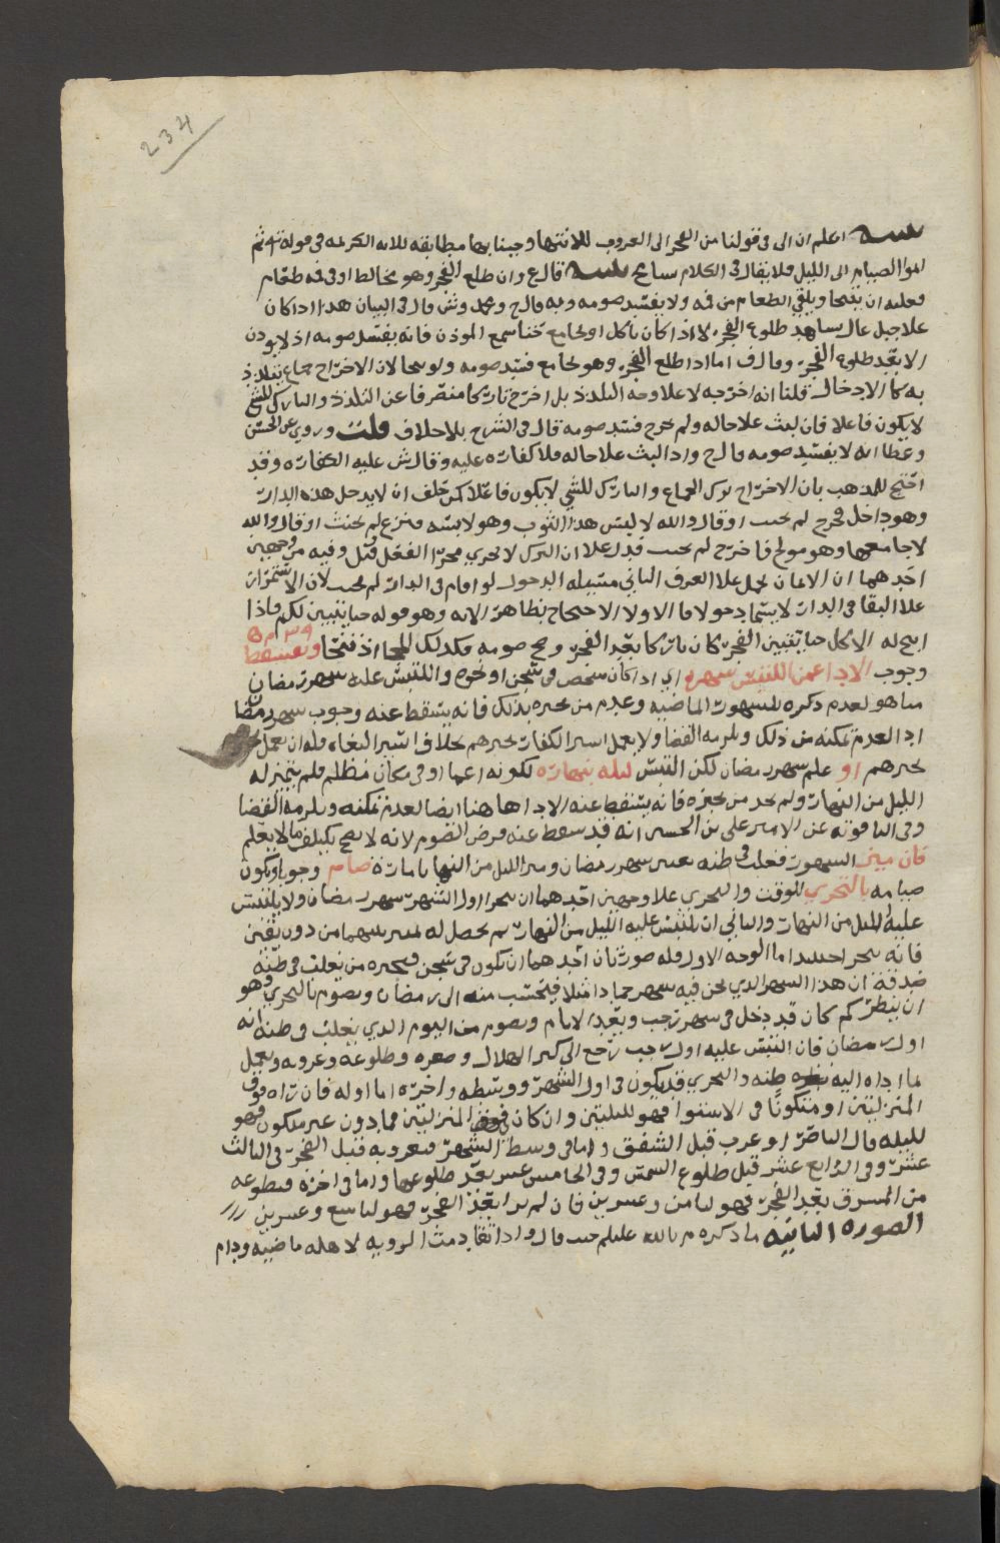 234
اعلم ان الى فى قولنا من الفجر الى الغروب للانتها وجينا بها مطابقه للايه الكريمه فى قوله ثم
اتموا الصيام الى الليل فلا يقال فى الكلام تسامح تنبيه قال ع وان طلع الفجر وهو مخالط او فى فمه طعام
فعليه ان يتنحا ويلقي الطعام من فمه ولا يفسد صومه وبه قال ح ومحمد وش قال فى البيان هذا اذا كان
علا جبل عال يشاهد طلوع الفجر لا اذا كان ياكل او يجامع حتا سمع الموذن فانه يفسد صومه اذ لا يوذن
الا بعد طلوع الفجر وقال ف اما اذا طلع الفجر وهو يجامع فسد صومه ولو تنحا لان الاخراج جماع يتلذذ
به كالادخال قلنا انه اخرجه لا علا وجه التلذذ بل اخرج تاركا منصرفا عن التلذذ والتارك للشي
لا يكون فاعلا فان لبث علا حاله ولم يخرج فسد صومه قال فى الشرح بلا خلاف قلت وروي عن الحسن
وعطا انه لا يفسد صومه قال ح واذا لبث علا حاله فلا كفاره عليه وقال ش عليه الكفاره وقد
احتج للمذهب بان الاخراج ترك الجماع والتارك للشي لا يكون فاعلا كمن حلف ان لا يدخل هذه الدار
وهو داخل فخرج لم يحنث او قال والله لا لبس هذا الثوب وهو لابسه فنزع لم يحنث او قال والله
لا جامعها وهو مولج فاخرج لم يحنث فدل علا ان الترك لا يجري مجرا الفعل قيل وفيه من وجهين
احدهما ان الايمان تحمل علا العرف الثاني مسيله الدخول لو اقام فى الدار لم يحنث لان الاستمرار
علا البقا فى الدار لا يسما دخولا فالاولا الاحتجاج بظاهر الايه وهو قوله حتا يتبين لكم فاذا
ابيح له الاكل حتا يتبين الفجر كان تاركا بعد الفجر وصح صومه فكذلك المجامع اذ تنحا ويسقط
وجوب الادا عمن التبس شهره اي اذا كان شخص فى سجن او نحوه والتبس عليه شهر رمضان
ما هو لعدم ذكره للشهور الماضيه وعدم من يخبره بذلك فانه يسقط عنه وجوب شهر رمضان
ادا لعدم تمكنه من ذلك ويلزمه القضا ولا يعمل اسير الكفار بخبرهم بخلاف اسير البغاه فله ان يعمل
بخبرهم او علم شهر رمضان لكن التبس ليله بنهاره لكونه اعما او فى مكان مظلم فلم يتميز له
الليل من النهار ولم يجد من يخبره فانه يسقط عنه الادا هاهنا ايضا لعدم تمكنه ويلزمه القضا
وفى الياقوته عن الامير علي بن الحسين انه قد سقط عنه فرض الصوم لانه لا يصح تكليف ما لا يعلم
فان ميز الشهور فغلب فى ظنه تعيين شهر رمضان وميز الليل من النهار بامارة صام وجوبا ويكون
صيامه بالتحري للوقت والتحري علا وجهين احدهما ان يتحرا اول الشهر شهر رمضان ولا يلتبس
عليه الليل من النهار والثاني ان يلتبس عليه الليل من النهار ثم يحصل له تمييز بينهما من دون يقين
فانه يتحر اما الوجه الاول فله صورتان احدهما ان يكون فى سجن فيخبره من يغلب فى ظنه
صدقه ان هذا الشهر الذي نحن فيه شهر جمادا مثلا فيحتسب منه الى رمضان ويصوم بالتحري وهو
ان ينظر كم كان قد دخل فى شهر رجب وبعد الايام ويصوم من اليوم الذي يغلب فى ظنه انه
اول رمضان فان التبس عليه اول رجب رجع الى كبر الهلال وصغره وطلوعه وغروبه ويعمل
بما اداه اليه ظنه والتحري قد يكون فى اول الشهر ووسطه واخره اما اوله فان رآه فوق
المنزلتين او متكونا فى الاستوا فهو لليلتين وان كان المنزلتين فما دون غير متكون فهو
لليله قال الناصر او غرب قبل الشفق واما فى وسط الشهر فغروبه قبل الفجر فى الثالث
عشر وفى الرابع عشر قبل طلوع الشمس وفى الخامس عشر بعد طلوعها واما فى اخره فطلوعه
من المشرق بعد الفجر فهو لثامن وعشرين فان لم ير بعد الفجر فهو لتاسع وعشرين
الصوره الثانيه ما ذكره م بالله عليلم حيث قال واذا تقادمت الرويه لاهله ماضيه ودام